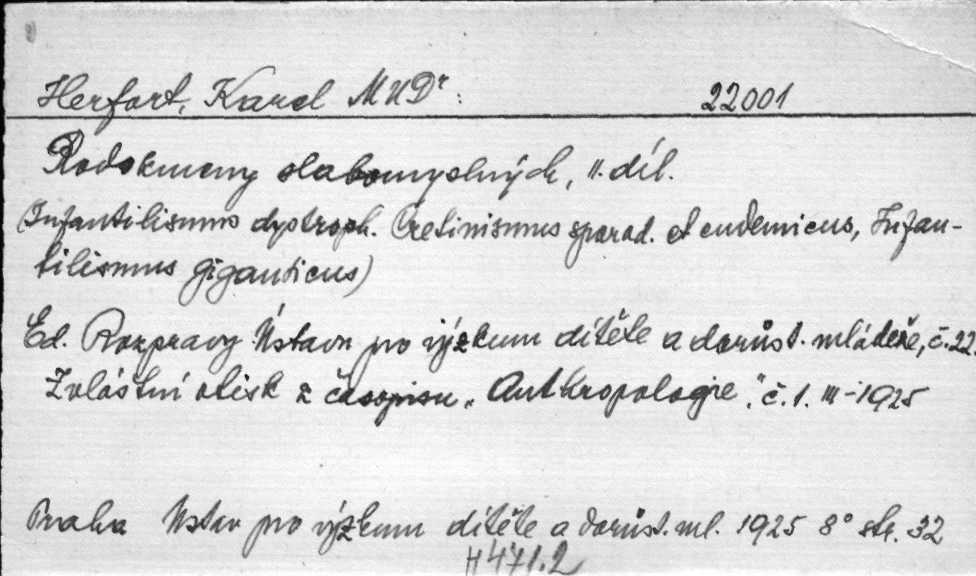 Herfort, Karel MUDr: 22001
Rodokmeny slabomyslných, II. díl.
(Infantilismus dystroph. Cretinismus sporad. et endemicus, Infan-
tilismus giganticus)
Ed. Rozpravy Ústavu pro výzkum dítěte a dorůst. mládeže, č. 22.
Zvláštní otisk z časopisu „Anthropologie", č. 1. III-1925
Praha Ústav pro výzkum dítěte a dorůst. ml. 1925 8° str. 32
H 471.2